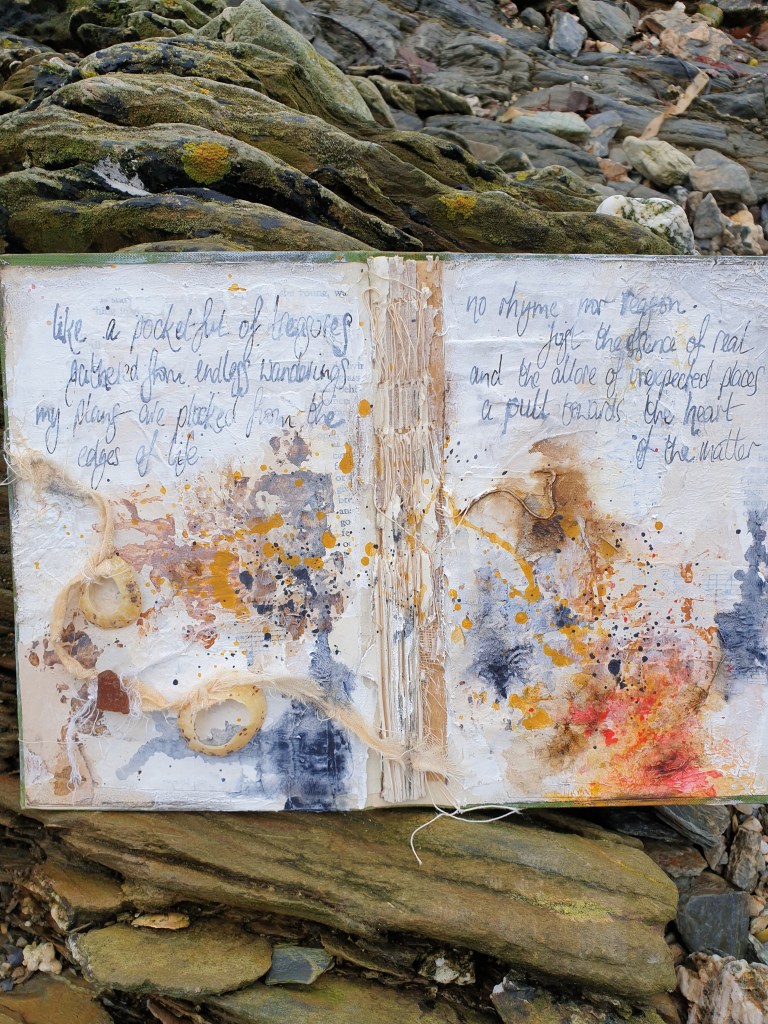 like a pocket-ful of treasures
gathered from endless wanderings
my being are plucked from the
edges of life
no rhyme nor reason
just the dance of real
and the allure of unexpected places
a pull towards the heart
of the matter